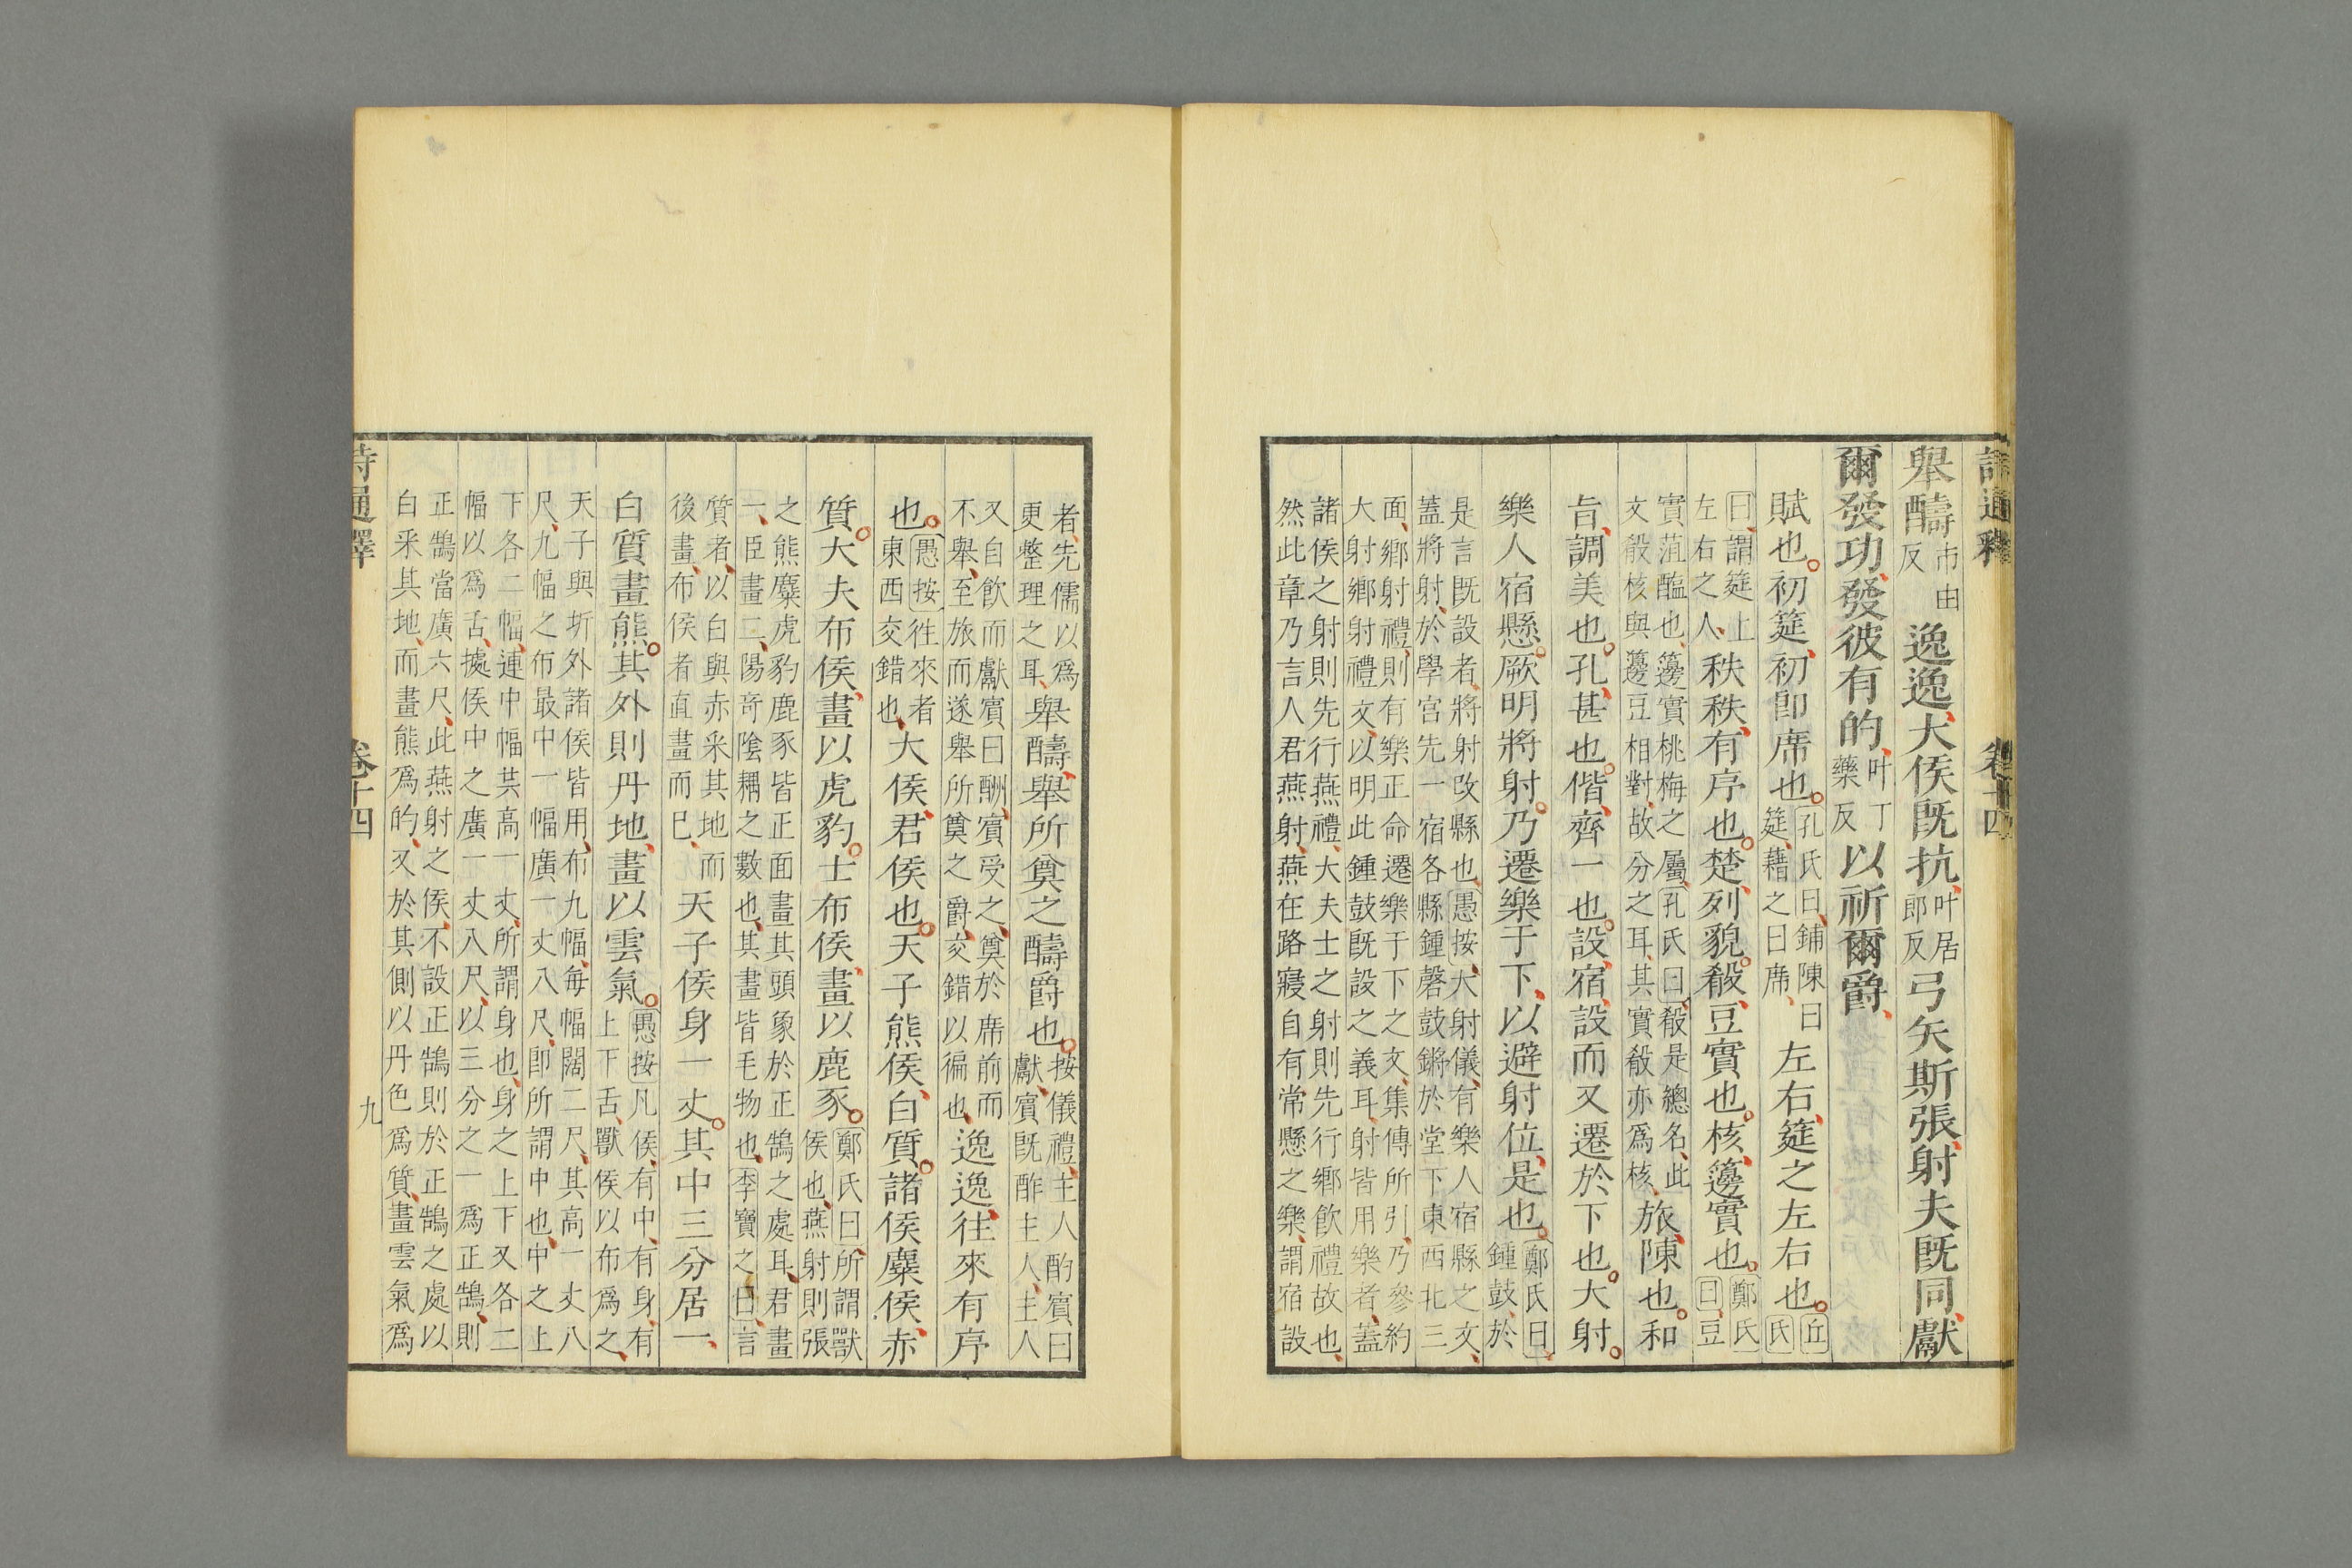 詩通釋 卷十四
舉醻市由反逸逸大侯旣抗叶居郎反弓矢斯張射夫旣同獻
爾發功發彼有的叶丁藥反以祈爾爵
賦也初筵初卽席也孔氏曰鋪陳曰筵藉之曰席左右筵之左右也丘氏
曰謂筵上左右之人秩秩有序也楚列貌殽豆實也核籩實也鄭氏曰豆
實菹醢也籩實桃梅之屬孔氏曰殽是總名此文殽核與籩豆相對故分之耳其實殽亦爲核旅陳也和
旨調美也孔甚也偕齊一也設宿設而又遷於下也大射
樂人宿懸厥明將射乃遷樂于下以避射位是也鄭氏曰鍾鼓於
是言旣設者將射攺縣也愚按大射儀有樂人宿縣之文
蓋將射於學宮先一宿各縣鍾磬鼓鏄於堂下東西北三
面鄉射禮則有樂正命遷樂于下之文集傳所引乃參約
大射鄉射禮文以明此鍾鼓旣設之義耳射皆用樂者蓋
諸侯之射則先行燕禮大夫士之射則先行鄉飮禮故也
然此章乃言人君燕射燕在路寢自有常懸之樂謂宿設
者先儒以爲更整理之耳舉醻舉所奠之醻爵也按儀禮主人酌賓曰獻賓旣酢主人主人
又自飮而獻賓曰酬賓受之奠於席前而不舉至旅而遂舉所奠之爵交錯以徧也逸逸往來有序
也愚按徃來者東西交錯也大侯君侯也天子熊侯白質諸侯麋侯赤
質大夫布侯畫以虎豹士布侯畫以鹿豕鄭氏曰所謂獸侯也燕射則張
之熊麋虎豹鹿豕皆正面畫其頭象於正鵠之處耳君畫
一臣畫二陽竒陰耦之數也其畫皆毛物也李寶之曰言
質者以白與赤采其地而後畫布侯者直畫而巳天子侯身一丈其中三分居一
白質畫熊其外則丹地畫以雲氣愚按凡侯有中有身有上下舌獸侯以布爲之
天子與圻外諸侯皆用布九幅每幅闊二尺其高一丈八
尺九幅之布最中一幅廣一丈八尺卽所謂中也中之上
下各二幅連中幅共高一丈所謂身也身之上下又各二
幅以爲舌據侯中之廣一丈八尺以三分之一爲正鵠則
正鵠當廣六尺此燕射之侯不設正鵠則於正鵠之處以
白采其地而畫熊爲的又於其側以丹色爲質畫雲氣爲
詩通釋 卷十四 九